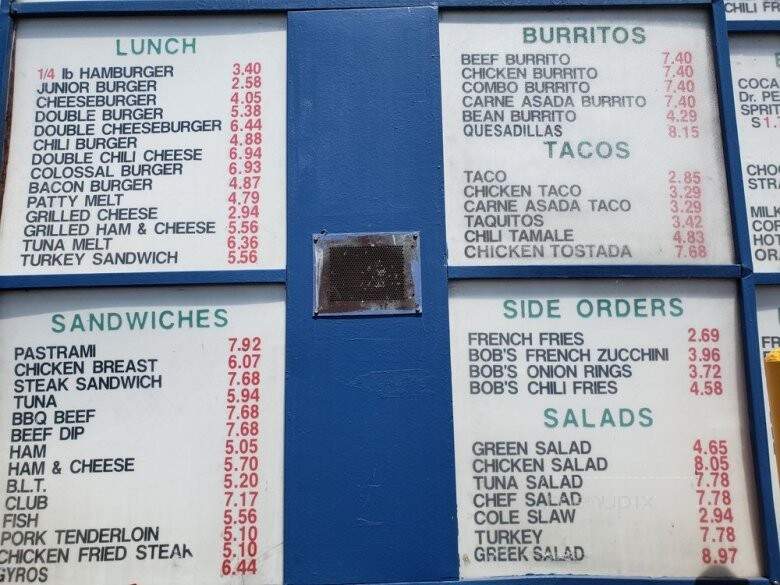 LUNCH
1/4 lb HAMBURGER 3.40
JUNIOR BURGER 2.58
CHEESEBURGER 4.05
DOUBLE BURGER 5.38
DOUBLE CHEESEBURGER 6.44
CHILI BURGER 4.88
DOUBLE CHILI CHEESE 6.94
COLOSSAL BURGER 6.93
BACON BURGER 4.87
PATTY MELT 4.79
GRILLED CHEESE 2.94
GRILLED HAM & CHEESE 5.56
TUNA MELT 6.36
TURKEY SANDWICH 5.56
SANDWICHES
PASTRAMI 7.92
CHICKEN BREAST 6.07
STEAK SANDWICH 7.68
TUNA 5.94
BBQ BEEF 7.68
BEEF DIP 7.68
HAM 5.05
HAM & CHEESE 5.70
B.L.T. 5.20
CLUB 7.17
FISH 5.56
PORK TENDERLOIN 5.10
CHICKEN FRIED STEAK 5.10
GYROS 6.44
BURRITOS
BEEF BURRITO 7.40
CHICKEN BURRITO 7.40
COMBO BURRITO 7.40
CARNE ASADA BURRITO 7.40
BEAN BURRITO 4.29
QUESADILLAS 8.15
TACOS
TACO 2.85
CHICKEN TACO 3.29
CARNE ASADA TACO 3.29
TAQUITOS 3.42
CHILI TAMALE 4.83
CHICKEN TOSTADA 7.68
SIDE ORDERS
FRENCH FRIES 2.69
BOB'S FRENCH ZUCCHINI 3.96
BOB'S ONION RINGS 3.72
BOB'S CHILI FRIES 4.58
SALADS
GREEN SALAD 4.65
CHICKEN SALAD 8.05
TUNA SALAD 7.78
CHEF SALAD 7.78
COLE SLAW 2.94
TURKEY 7.78
GREEK SALAD 8.97
CHILI FR
COCA
Dr. PE
SPRIT
S 1.
CHO
STR
MILK
COF
HOT
OR
FR